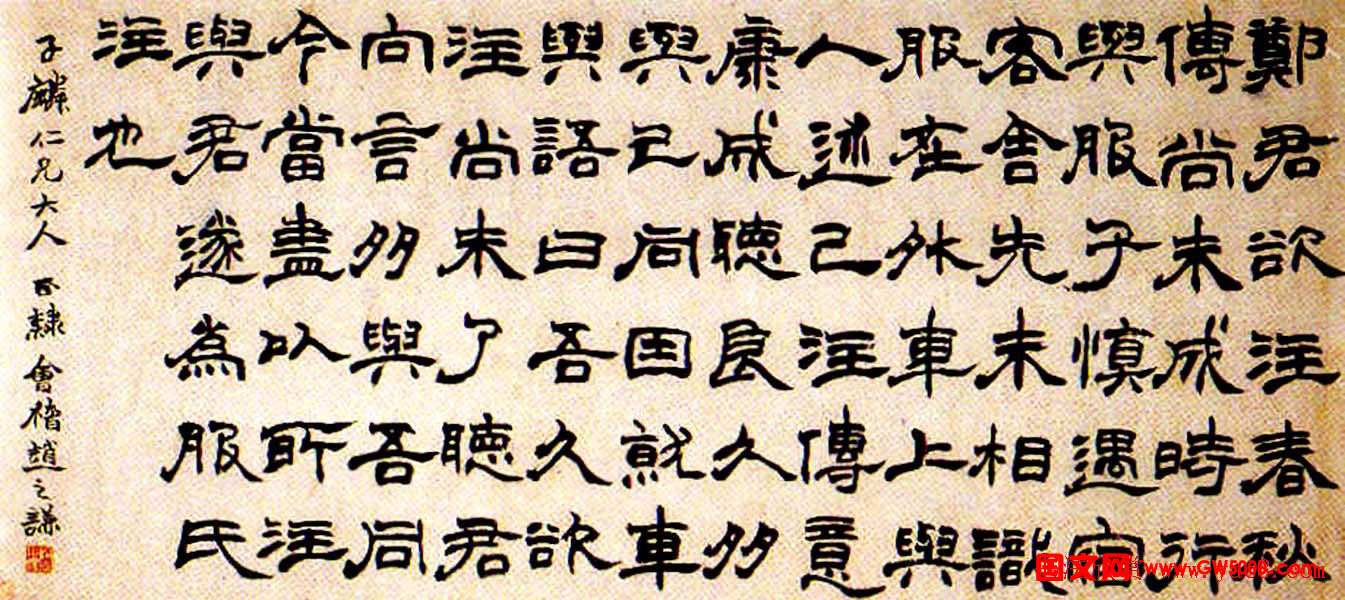 鄭君欲注春秋
傳尚未成時行
與服子慎遇宿
客舍先未相識
服在外車上與
人述己注傳意
康成聽良久多
與己同因就車
與語曰吾久欲
注尚未了聽君
向言多與吾同
今當盡以所注
與君遂為服氏
注也
子麟仁兄大人正隸會稽趙之謙
图文网